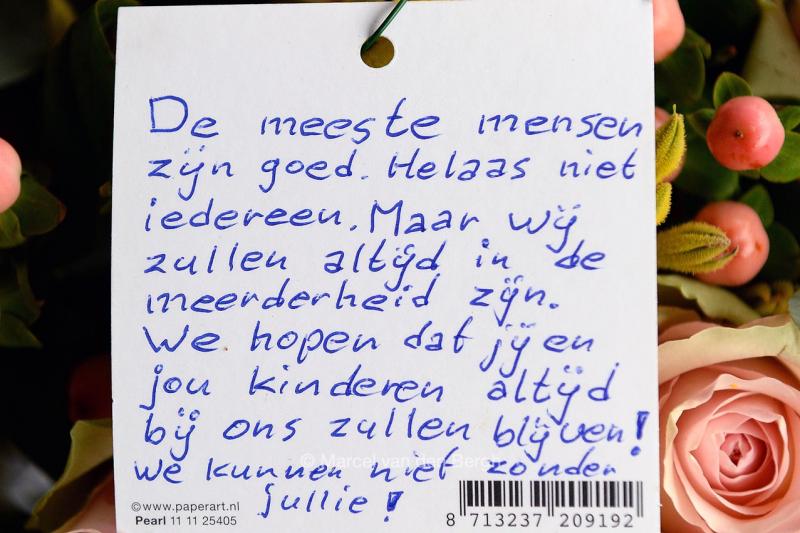 De meeste mensen
zijn goed. Helaas niet
iedereen. Maar wij
zullen altijd in de
meerderheid zijn.
We hopen dat jij en
jou kinderen altijd
bij ons zullen blijven!
We kunnen niet zonder
jullie!
© Marcel van den Bergh
©www.paperart.nl
Pearl 11 11 25405
8 713237 209192